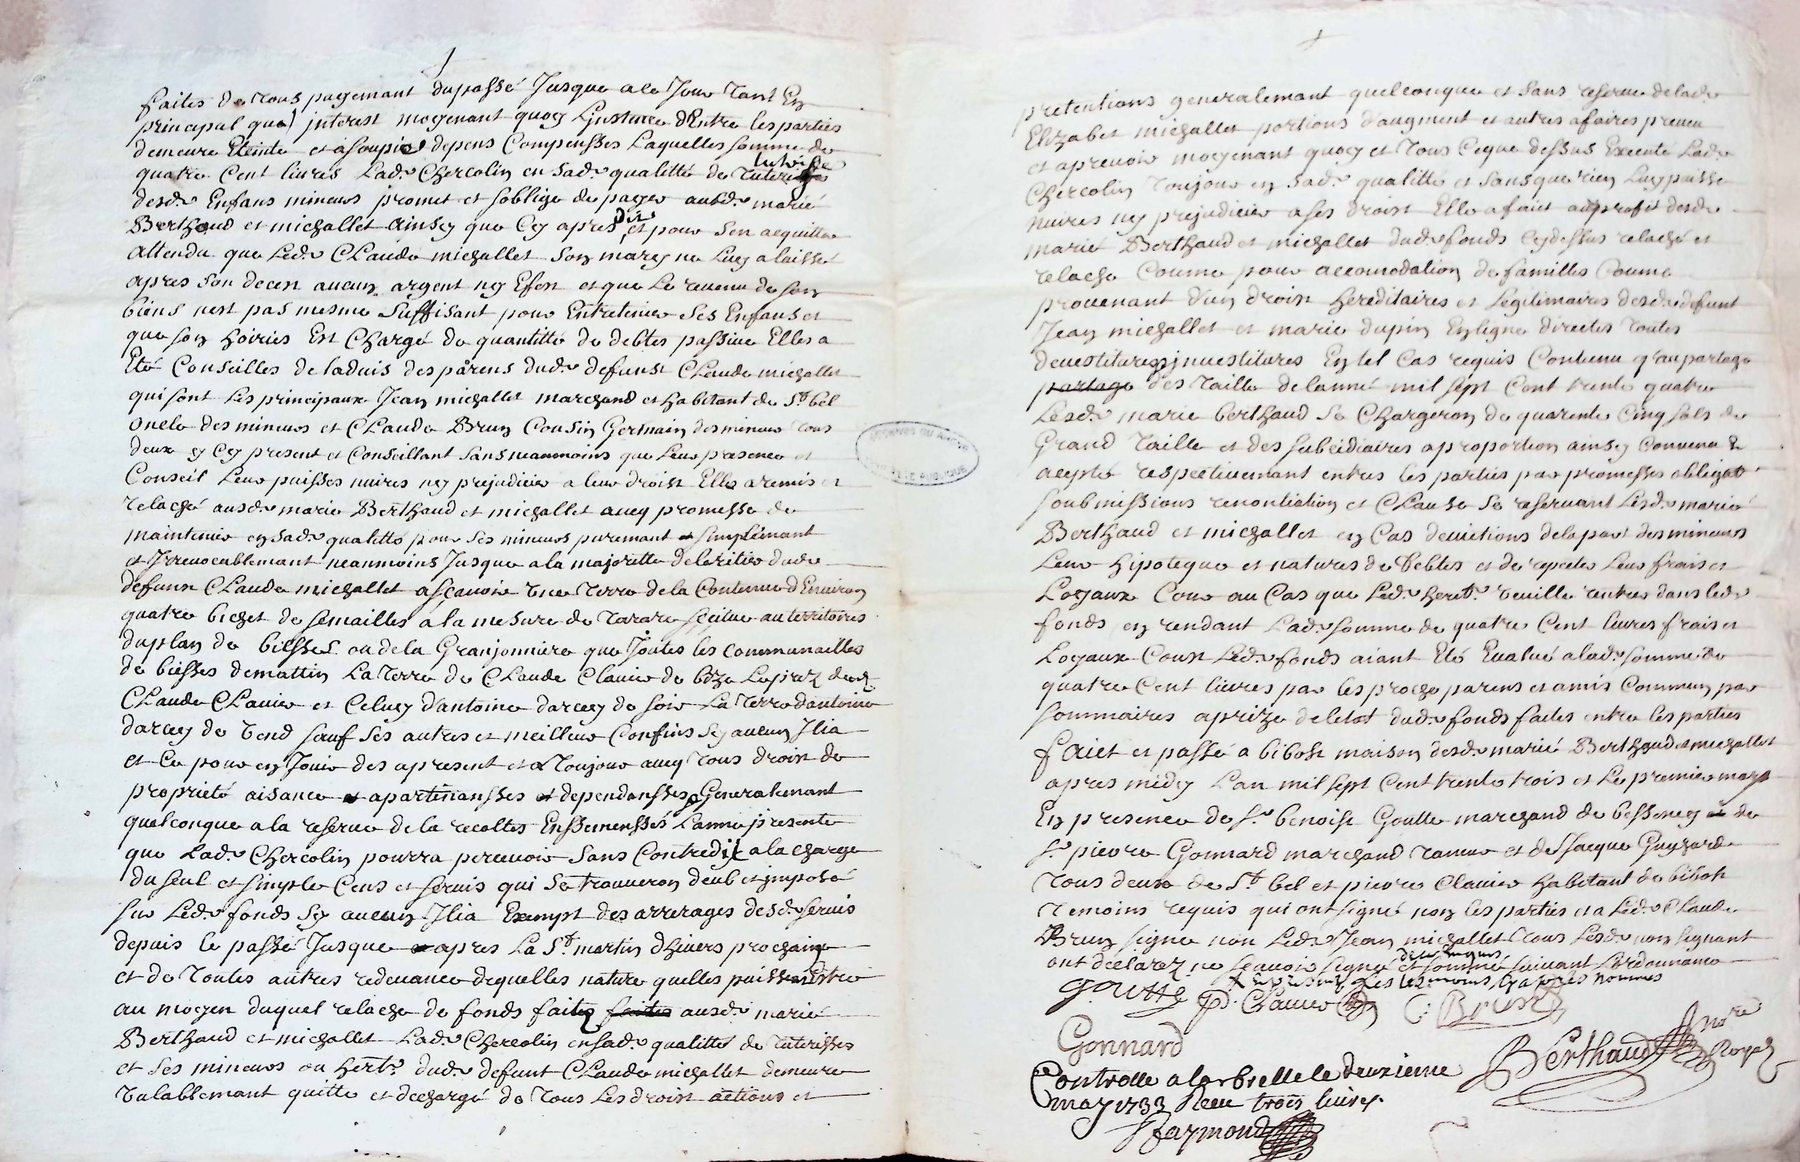 faites de tous payemant du passé Jusque a ce Jour tant En
principal que interest moyenant quoy Linstance d'Entre les parties
demeure Eteinte et asoupie depens Compensses Laquelles somme de
quatre Cent livres Lad.e Chercolin en sad.e qualitté de tuterisse
desd. Enfans mineurs promet et soblige de payer ausd. marié
Berthaud et michallet ainsy que Cy apres dit et pour sen acquitter
attendu que Led. CLaude michallet son mary ne Luy a laissé
apres son deces aucun argent ny Efest et que Le revenu de son
biens n'est pas mesme suffisant pour Entretenir ses Enfans et
que son hoiries Est Chargé de quantitté de debtes passive Elles a
Eté Conseilles de laduis des pârens dud. defunst CLaude michallet
qui sont Les principaux Jean michallet marchand et habitant de St. bel
oncle des mineurs et CLaude Brun Cousin Germain des mineurs tous
deux y Cy present et Conseillant sans neanmoins que Leur presence et
Conseil Leur puisses nuires ny prejudicier a leur droist Elle a remis et
relaché ausd. marié Berthaud et michallet avec promesse de
maintenir en sad. qualitté pour ses mineurs puremant et simplemant
et Irrevocablemant neanmoins Jusque a la majoritté de leritier dud.
defunst CLaude michallet asçavoir Une Terre de la Contenue d'Environ
quatre bichet de semailles a la mesure de Tarare scitue au territoires
du plan de biesses ou de la Granjonniere que Joutes les communailles
de biesses de mattin La Terre de CLaude Clavier de bize Le prez dud.
CLaude CLavier et Celuy d'antoine darcey de soir La Terre d'antoine
darcey de vend sauf ses autres et meilleur Confins sy aucun Ilia
et Ce pour en Jouir des apresent et a Toujour avec Tous droist de
proprieté aisance et apartenansses et dependansses Generalemant
quelconque a la reserve de la recoltes Enssemenssés Lanné presente
que Lad.e Chercolin pourra percevoir sans Contredit a la charge
du seul et simple Cens et servis qui se trouveron deub et imposé
sur Led. fonds sy aucun Ilia Exempt des arrerages desd. servis
depuis le passé Jusque apres La St. martin d'hivers prochaine
et de toutes autres redevance dequelles nature quelles puissent Estre
au moyen duquel relache de fonds faitz faites ausd. marié
Berthaud et michallet Lad.e Chercolin en sad. qualitté de tuterisses
et ses mineurs ou herit.r dud. defunt CLaude michallet demeure
valablemant quitte et dechargé de Tous Les droist actions et
pretentions generalemant quelconque et sans reserve de lad.
Elizabet michallet portions d'augment et autres afaires preveu
et aprevoir moyenant quoy et Tous Ceque dessus Execute Lad.
Chercolin Toujour en sad. qualitté et sans que rien Luy puisse
nuires ny prejudicier a ses droist Elle a faict au profit desd.
marié Berthaud et michallet dud. fonds Cy dessus relaché et
relache Coume pour accomodation de familles Coume
provenant d'un droist hereditaires et Legitimaires desd. defunt
Jean michallet et marie dupin En ligne directes Toutes
devestitures investitures En tel Cas requis Contenu qu'au partage
partage des Taille de lanné mil sept Cent trente quatre
Lesd. marié berthaud se Chargeron de quarente Cinq sols de
Grand Taille et des subcidiaires a proportion ainsy Convenu et
acepté respectivemant entres les parties par promesses obligat.
soubmissions renontiation et CLause se reservant Lesd. marié
Berthaud et michallet en Cas devictions de la part des mineurs
Leur hipoteque et natures de debtes et de repetes Leur frais et
Loyaux Cour au Cas que Led. herit.r veuille rentrer dans led.
fonds en rendant Lad. somme de quatre Cent livres frais et
Loyaux Coust Led. fonds aiant Eté Evalué a lad. somme de
quatre Cent livres par les proche parens et amis Commun par
sommaires aprize de letat dud. fonds faites entre les parties
faict et passé a bibost maison desd. marié Berthaud et michallet
apres midy L'an mil sept Cent trente trois et Le premier may
En presence de Sr. benoist Goutte marchand de bessenay de
Sr. pierre Gonnard marchand Taneur et de Jacque Guyhard
Tous deux de St. bel et pierre Clavier habitant de bibost
Temoins requis qui ont signé non les parties et a Led. CLaude
Brun signe non Led. Jean michallet Tous Lesd. non signant
ont declarez ne sçavoir signe et sommé suivant Lordonnance
Goutte P. Clavier C. Brun
Gonnard
Berthaud No.re Royal
Controllé a larbrelle le deuxieme
may 1733 Receu trois livres
Raymond